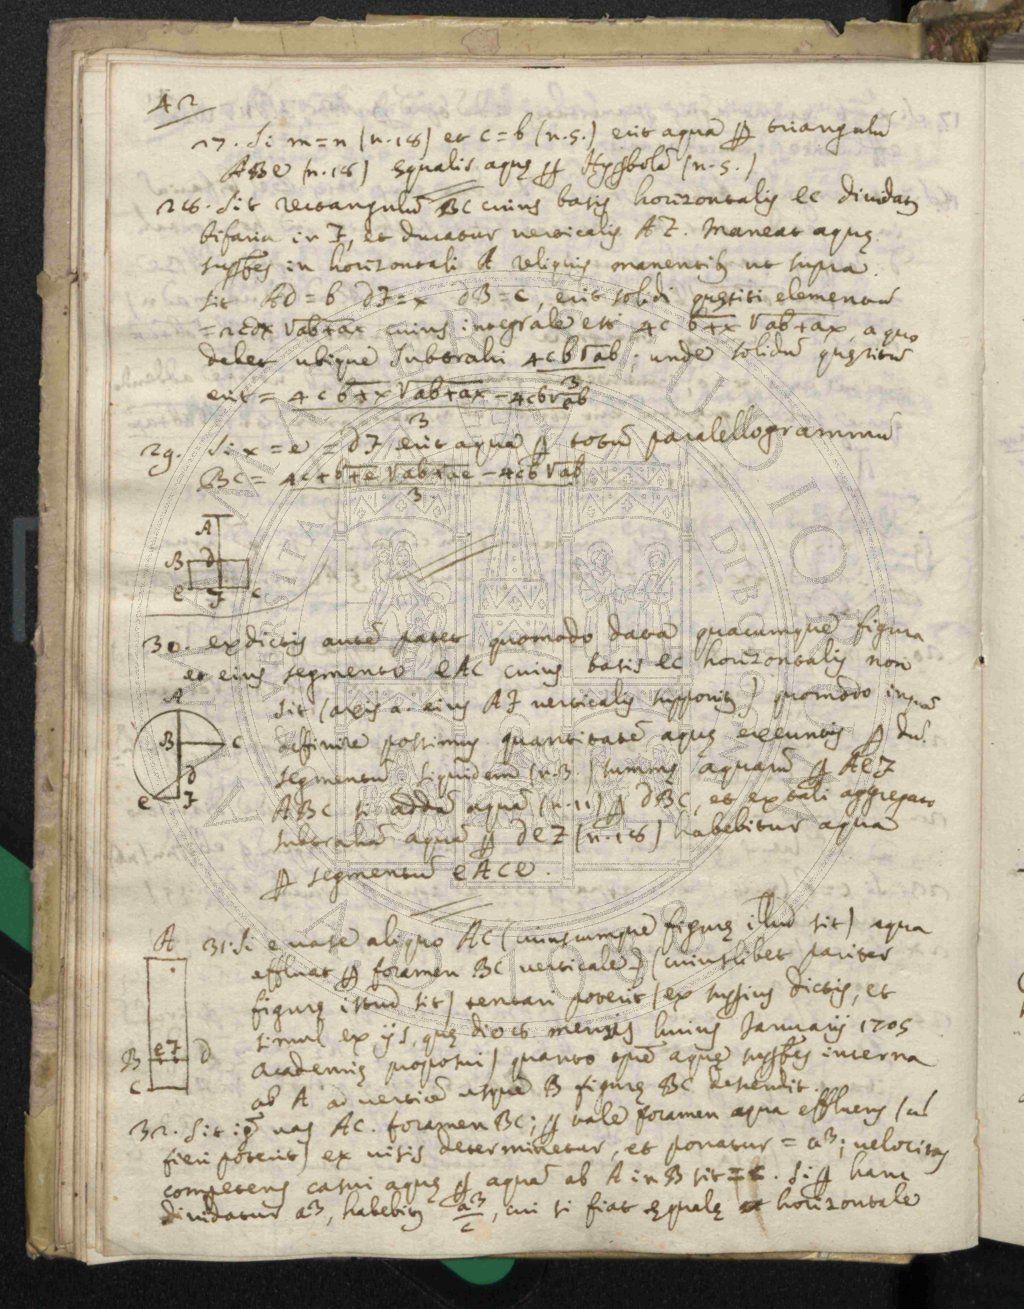 42
27. Si m=n (n.18) et c=b (n.5.) erit aqua ꝑ triangulū
ABe (n.18) equalis aquę ꝑ Hypbolā (n.5.)
28. Sit rectangulū BC cuius basis horizontalis eC dividatꝫ
bifariā in F, et ducatur verticalis AF. Maneat aquę
supfꝭes in horizontali A reliquis manentibꝫ ut supra.
sit Ad=b dF=x dB=c, erit solidi quęsiti elementū
=2cdx √ab+ax cuius integrale est 4c b+x √ab+ax, a quo
debet ubique subtrahi 4cb√ab; unde solidū quęsitū
3
erit = 4c b+x √ab+ax − 4cb√ab
3
29. Si x=e=dF erit aqua ꝑ totū paralellogrammū
BC = 4c+b+e √ab+ae − 4cb√ab
3
A
B d
e F C
30. ex dictis autē patet quomodo data quacumque figura
et eius segmento eAC cuius basis eC horizontalis non
sit (axis a. eius AF verticalis supponitꝫ) quomodo inquā
definire possimus quantitatē aquę exeuntis ꝑ du.
segmentū siquidem (n.3.) summę aquarū ꝑ AeF
ABC si addā aquā (n.11) ꝑ dBC, et ex tali aggregato
subtrahā aquā ꝑ deF (n.18) habebitur aqua
ꝑ segmentū eACe.
A
B C
d
e F
31. Si e vase aliquo AC (cuiuscumque figurę illud sit) aqua
effluat ꝑ foramen BC verticale (cuiuslibet pariter
figurę istud sit) tentari poterit (ex supius dictis, et
simul ex ijs, quę die 8 mensis huius Januarij 1705
academię proposui) quanto tpē aquę supfꝭes interna
ab A ad verticē usque B figurę BC descendit.
A
B e F d
C
32. Sit igr̄ vas AC. foramen BC; ꝑ tale foramen aqua effluens (ut
fieri poterit) ex visis determinetur, et ponatur = a³; velocitas
competens casui aquę ꝑ aquā ab A in B sit = c. Si ꝑ hanc
dividatur a³, habebitꝫ a³/c, cui si fiat ęqualę horizontale